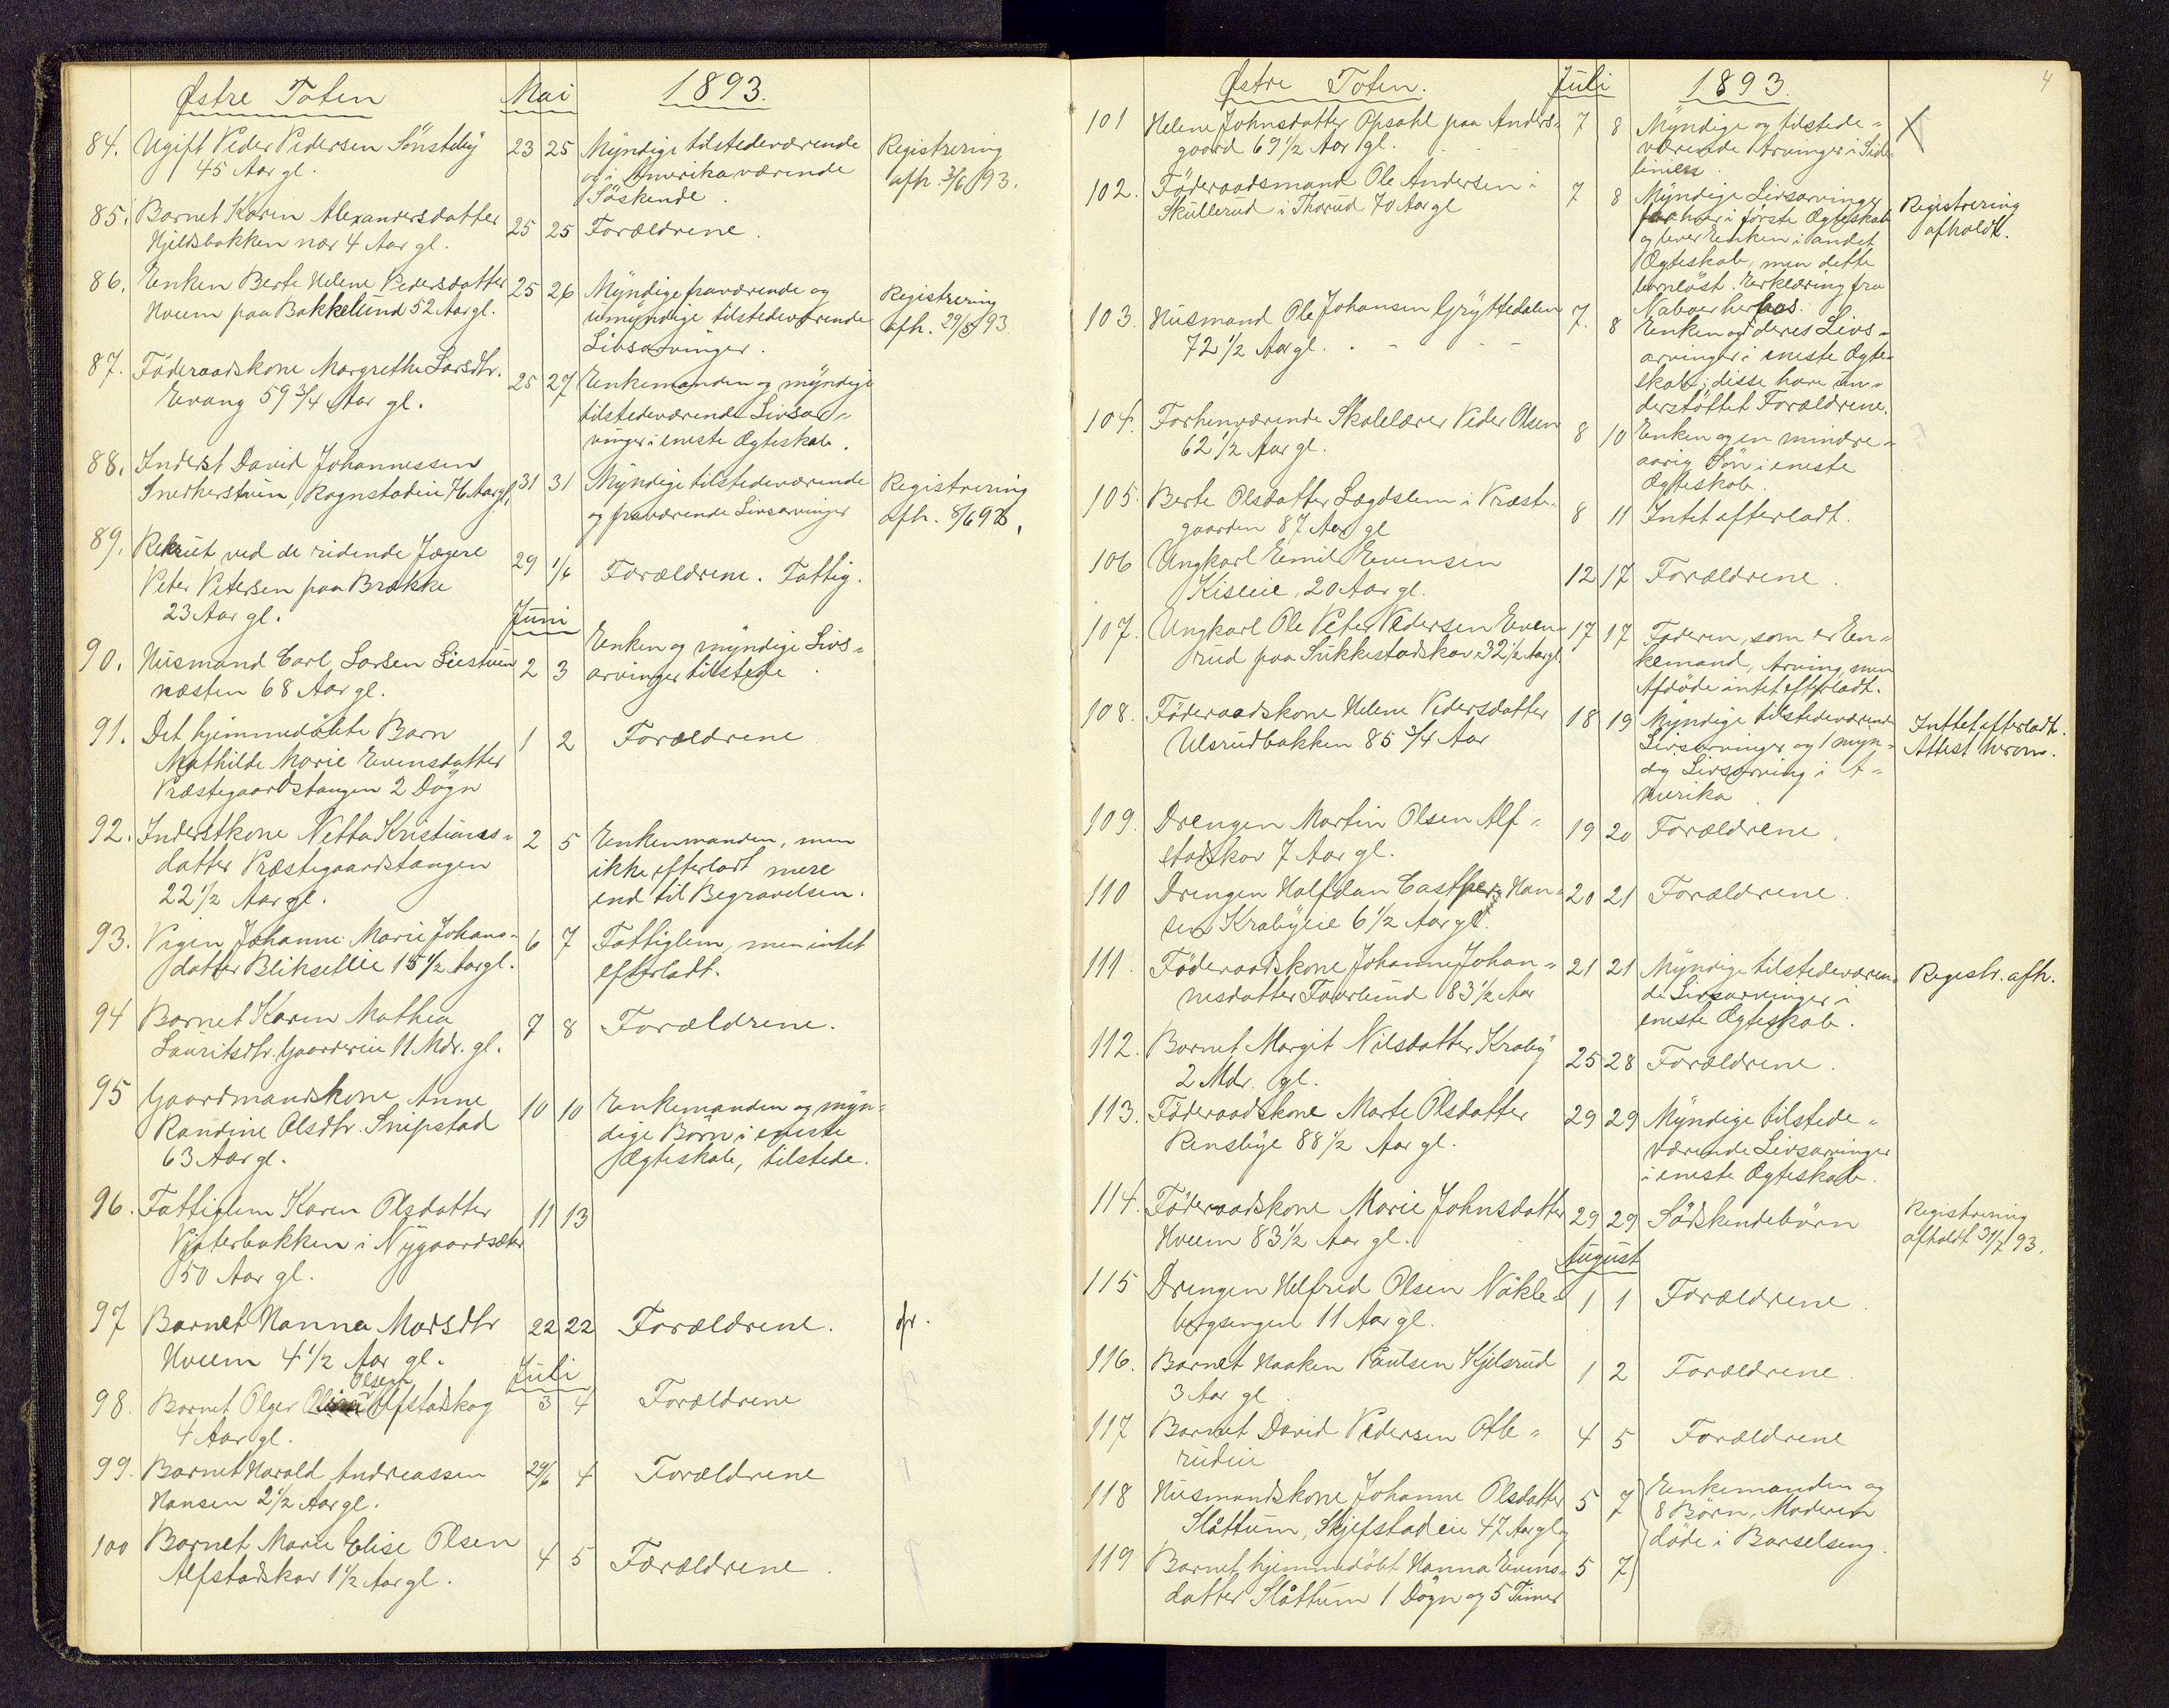 Østre Toten Mai 1893.
84. Ugift Peder Pedersen Sönsteby 23 25 Myndige tilstedeværende Registrering
45 Aar gl. og i Amerika værende afh. 3/6 93.
Söskende.
85. Barnet Karen Alexandersdatter 25 25 Forældrene.
Hjeldsbakken nær 4 Aar gl.
86. Enken Berte Helene Pedersdatter 25 26 Myndige fraværende og Registrering
Hveem paa Bakkelund 52 Aar gl. umyndige tilstedeværende afh. 29/5 93.
Livsarvinger.
87. Föderaadskone Margrethe Larsdtr. 25 27 Enkemanden og myndige
Evang 59 3/4 Aar gl. tilstedeværende Livsar-
vinger i eneste Ægteskab.
88. Inderst David Johannessen 31 31 Myndige tilstedeværende Registrering
Snerkerstuen, Rognstadeie 76 Aar gl. og fraværende Livsarvinger afh. 8/6 93.
89. Rekrut ved de ridende Jægere 29 1/6 Forældrene. Fattig.
Peter Petersen paa Brække
23 Aar gl.
Juni
90. Husmand Carl Larsen Liestuen 2 3 Enken og myndige Livs-
næsten 68 Aar gl. arvinger tilstede.
91. Det hjemmedöbte Barn 1 2 Forældrene
Mathilde Marie Evensdatter
Præstegaardstangen 2 Dögn
92. Inderstkone Netta Kristians- 2 5 Enkemanden, men
datter Præstegaardstangen ikke efterladt mere
22 1/2 Aar gl. end til Begravelsen.
93. Pigen Johanne Marie Johans- 6 7 Fattiglem, men intet
datter Blikseteie 15 1/2 Aar gl. efterladt.
94 Barnet Karen Mathea 7 8 Forældrene.
Lauritsdtr. Gaardereie 11 Mdr. gl.
95 Gaardmandskone Anne 10 10 Enkemanden og myn-
Randine Olsdtr. Snipstad dige Börn i eneste
63 Aar gl. Ægteskab, tilstede.
96. Fattiglem Karen Olsdatter 11 13
Pjaterbakken i Nygaardsæter
50 Aar gl.
97 Barnet Hanna Marsdtr 22 22 Forældrene.
Hveem 4 1/2 Aar gl.
Juli
Olsen
98. Barnet Olger Alfstadskog 3 4 Forældrene
4 Aar gl.
99. Barnet Harald Andreassen 29/6 4 Forældrene
Hansen 2 1/2 Aar gl.
100 Barnet Marie Elise Olsen 4 5 Forældrene.
Alfstadskov 1 1/2 Aar gl.
Østre Toten. Juli 1893. 4
101 Helene Johnsdatter Opsahl paa Anders- 7 8 Myndige og tilstede- X
gaard 69 1/2 Aar gl. værende Arvinger i Side-
linien.
102. Föderaadsmand Ole Andersen i 7 8 Myndige Livsarvinger Registrering
Skullerud i Thorud 70 Aar gl har her i förste Ægteskab afholdt.
og lever Enken i andet
Ægteskab, men dette
barnlöst. Erklæring fra
Naboer herhos.
103. Husmand Ole Johansen Gryttedalen 7. 8 Enken og deres Livs-
72 1/2 Aar gl. arvinger i eneste Ægte-
skab; disse have un-
derstöttet Forældrene.
104. Forhenværende Skolelærer Peder Olsen 8 10 Enken og en mindre-
62 1/2 Aar gl. aarig Sön i eneste
Ægteskab.
105. Berte Olsdatter Lægdslem i Præste- 8 11 Intet efterladt.
gaarden 87 Aar gl
106 Ungkarl Emil Evensen 12 17 Forældrene.
Kiseeie, 20 Aar gl.
107. Ungkarl Ole Peter Pedersen Even- 17 17 Faderen, som er En-
rud paa Sukkestadskov 32 1/2 Aar gl. kemand, Arving, men
Afdöde intet efterladt.
108. Föderaadskone Helene Pedersdatter 18 19 Myndige tilstedeværende Inttet efterladt.
Ulsrudbakken 85 3/4 Aar Livsarvinger og 1 myn- Attest herom.
dig Livsarving i A-
merika.
109. Drengen Martin Olsen Alf- 19 20 Forældrene.
stadskov 7 Aar gl.
110 Drengen Halfdan Castper Han- 20 21 Forældrene.
sen Krabyeie 6 1/2 Aar gl.
111. Föderaadskone Johanne Johan- 21 21 Myndige tilstedeværen- Registr. afh.
nesdatter Faverlund 83 1/2 Aar de Livsarvinger i
eneste Ægteskab.
112. Barnet Margit Nilsdatter Kraby 25 28 Forældrene.
2 Mdr. gl.
113. Föderaadskone Marte Olsdatter 29 29 Myndige tilstede-
Rensbye 88 1/2 Aar gl. værende Livsarvinger
i eneste Ægteskab.
114. Föderaadskone Marie Johnsdatter 29 29 Södskendebörn Registrering
Hveem 83 1/2 Aar gl. afholdt 31/7 93.
August
115 Drengen Helfred Olsen Nökle- 1 1 Forældrene.
bergsengen 11 Aar gl.
116. Barnet Haaken Paulsen Kjelsrud 1 2 Forældrene.
3 Aar gl.
117 Barnet David Pedersen Otte- 4 5 Forældrene
rudeie
118 Husmandskone Johanne Olsdatter 5 7 Enkemanden og
Slåttum, Skjefstadeie 47 Aar gl. 8 Börn. Moderen
döde i Barselseng.
119 Barnet hjemmedöbt Hanna Evens- 5 7
datter Slåttum 1 Dögn og 5 Timer